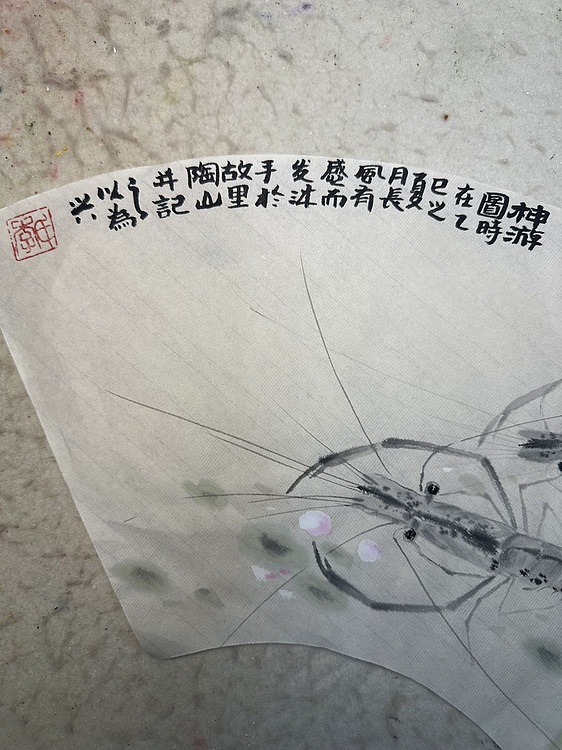 神游
圖時
在乙
巳之
夏
月長
風有
感而
发沐
手於
故里
陶山
并記
之
以為
兴